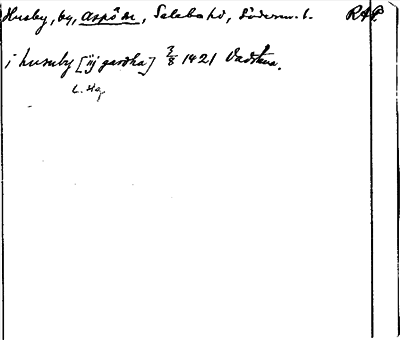 Husby, by, Aspö sn, Selebo hd, Söderm. l. RAP.
i husuby [ij gardha] 3/8 1421 Vadstena.